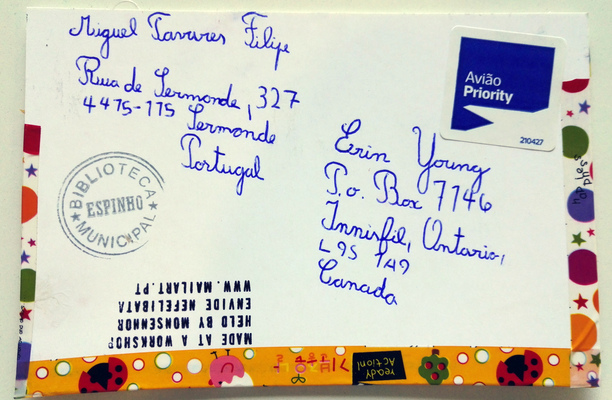 Miguel Tavares Filipe
Rua de Sermonde, 327
4415-115 Sermonde
Portugal
Avião
Priority
210427
Erin Young
P.o. Box 7146
Innisfil, Ontario,
L9S 1A9
Canada
BIBLIOTECA
ESPINHO
MUNICIPAL
MADE AT A WORKSHOP
HELD BY MONSENHOR
ENVIDE NEFELIBATA
WWW.MAILART.PT
ready
Action!